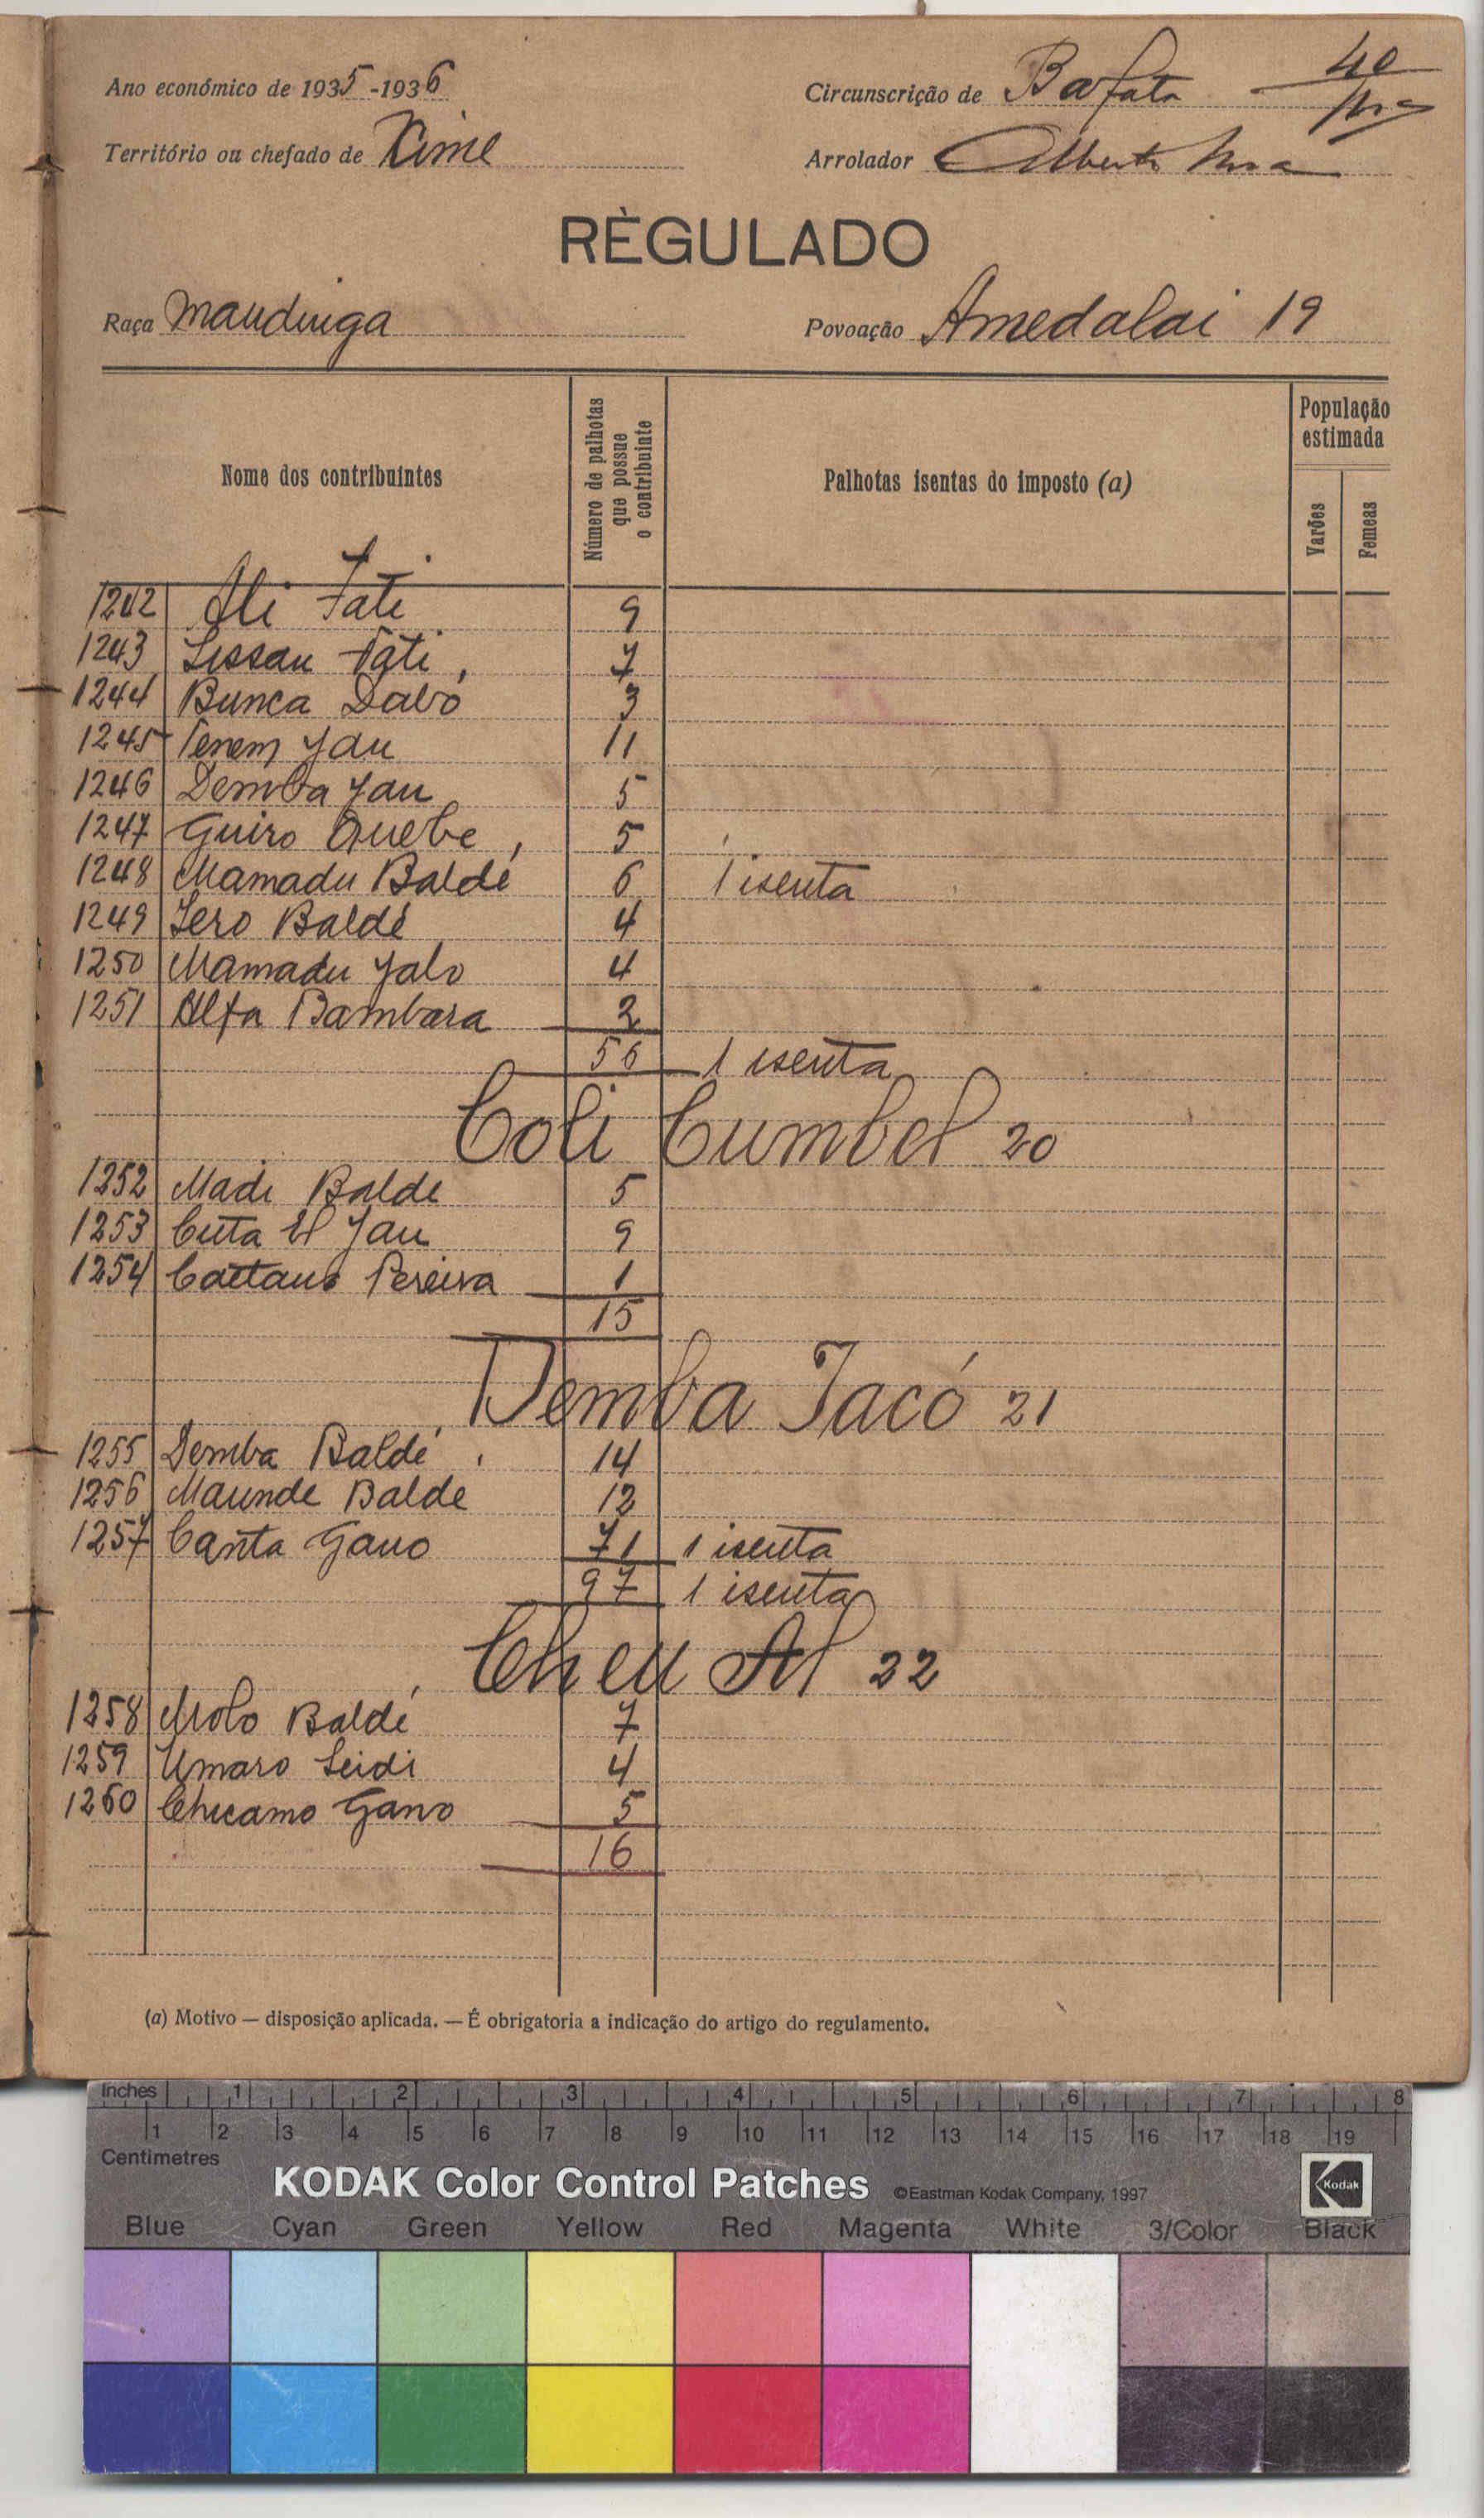 Ano económico de 1935-1936
Circunscrição de Bafata 40
Território ou chefado de Xime
Arrolador Alberto
RÈGULADO
Raça Mandinga
Povoação Amedalai 19
Nome dos contribuintes
Número de palhotas que possue o contribuinte
Palhotas isentas do imposto (a)
População estimada
Varões
Femeas
1242 Ali Fati 9
1243 Sissau Fati 7
1244 Bunca Dabó 3
1245 Tenem Jau 11
1246 Demba Jau 5
1247 Guiro Quebe 5
1248 Mamadu Baldé 6 1 isenta
1249 Sero Baldé 4
1250 Mamadu Jalo 4
1251 Alfa Bambara 2
56 1 isenta
Coli Cumbel 20
1252 Madi Balde 5
1253 Cuta El Jau 9
1254 Caetano Pereira 1
15
Demba Jacó 21
1255 Demba Baldé 14
1256 Maunde Balde 12
1257 Canta Gano 71 1 isenta
97 1 isenta
Cheu Al 22
1258 Molo Baldé 7
1259 Umaro Seidi 4
1260 Chicamo Gano 5
16
(a) Motivo — disposição aplicada. — É obrigatoria a indicação do artigo do regulamento.
Inches 1 2 3 4 5 6 7 8
1 2 3 4 5 6 7 8 9 10 11 12 13 14 15 16 17 18 19
Centimetres
KODAK Color Control Patches ©Eastman Kodak Company, 1997 Kodak
Blue Cyan Green Yellow Red Magenta White 3/Color Black